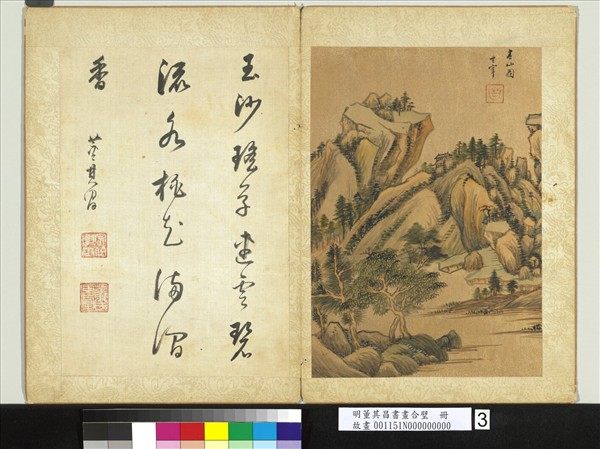 玉沙瑤草連雲碧
流水桃花滿澗
香
董其昌
山圖
玄宰
明董其昌書畫合璧 冊
故畫001151N000000000
3